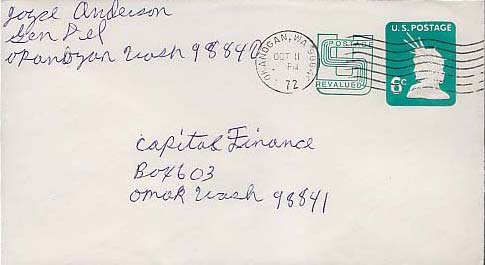 Joyce Anderson
Gen Del
Okanogan Wash 98840
OKANOGAN, WA
OCT 11
PM
72
U.S. POSTAGE
6c
POSTAGE
REVALUED
Capital Finance
Box 603
Omak Wash 98841